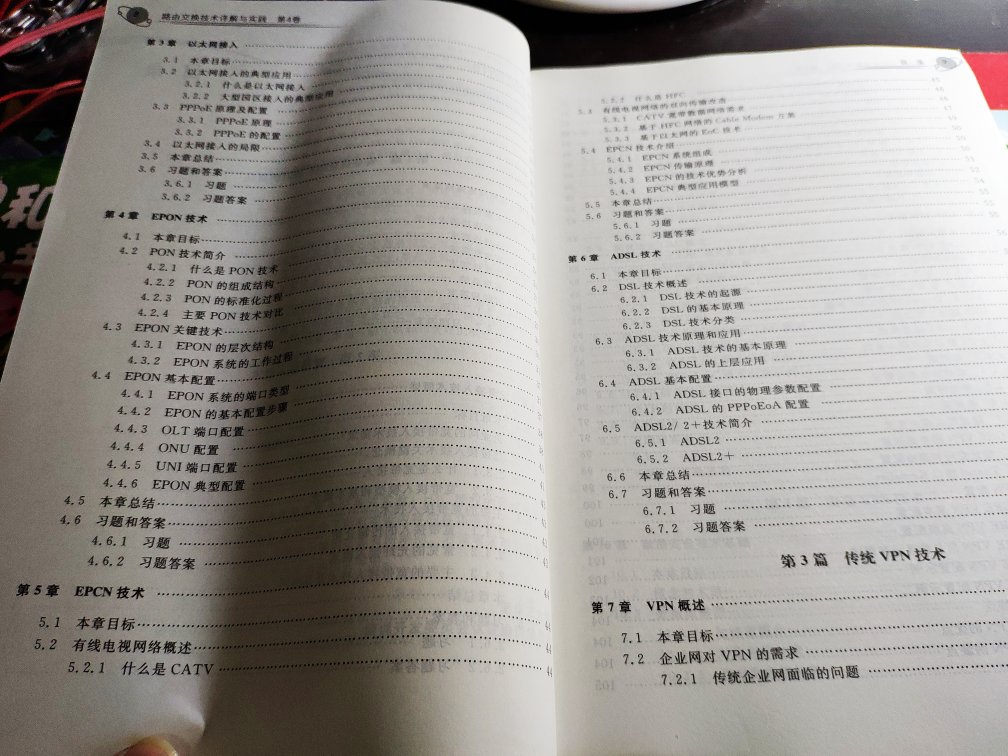 路由交换技术详解与实践 第4卷
第3章 以太网接入
3.1 本章目标
3.2 以太网接入的典型应用
3.2.1 什么是以太网接入
3.2.2 大型园区接入的典型应用
3.3 PPPoE 原理及配置
3.3.1 PPPoE 原理
3.3.2 PPPoE 的配置
3.4 以太网接入的局限
3.5 本章总结
3.6 习题和答案
3.6.1 习题
3.6.2 习题答案
第4章 EPON 技术
4.1 本章目标
4.2 PON 技术简介
4.2.1 什么是 PON 技术
4.2.2 PON 的组成结构
4.2.3 PON 的标准化过程
4.2.4 主要 PON 技术对比
4.3 EPON 关键技术
4.3.1 EPON 的层次结构
4.3.2 EPON 系统的工作过程
4.4 EPON 基本配置
4.4.1 EPON 系统的端口类型
4.4.2 EPON 的基本配置步骤
4.4.3 OLT 端口配置
4.4.4 ONU 配置
4.4.5 UNI 端口配置
4.4.6 EPON 典型配置
4.5 本章总结
4.6 习题和答案
4.6.1 习题
4.6.2 习题答案
第5章 EPCN 技术
5.1 本章目标
5.2 有线电视网络概述
5.2.1 什么是 CATV
目录
5.2.2 什么是 HFC
5.3 有线电视网络的双向传输改造
5.3.1 CATV 宽带数据网络需求
5.3.2 基于 HFC 网络的 Cable Modem 方案
5.3.3 基于以太网的 EoC 技术
5.4 EPCN 技术介绍
5.4.1 EPCN 系统组成
5.4.2 EPCN 传输原理
5.4.3 EPCN 的技术优势分析
5.4.4 EPCN 典型应用模型
5.5 本章总结
5.6 习题和答案
5.6.1 习题
5.6.2 习题答案
第6章 ADSL 技术
6.1 本章目标
6.2 DSL 技术概述
6.2.1 DSL 技术的起源
6.2.2 DSL 的基本原理
6.2.3 DSL 技术分类
6.3 ADSL 技术原理和应用
6.3.1 ADSL 技术的基本原理
6.3.2 ADSL 的上层应用
6.4 ADSL 基本配置
6.4.1 ADSL 接口的物理参数配置
6.4.2 ADSL 的 PPPoEoA 配置
6.5 ADSL2/2+技术简介
6.5.1 ADSL2
6.5.2 ADSL2+
6.6 本章总结
6.7 习题和答案
6.7.1 习题
6.7.2 习题答案
第3篇 传统 VPN 技术
第7章 VPN 概述
7.1 本章目标
7.2 企业网对 VPN 的需求
7.2.1 传统企业网面临的问题